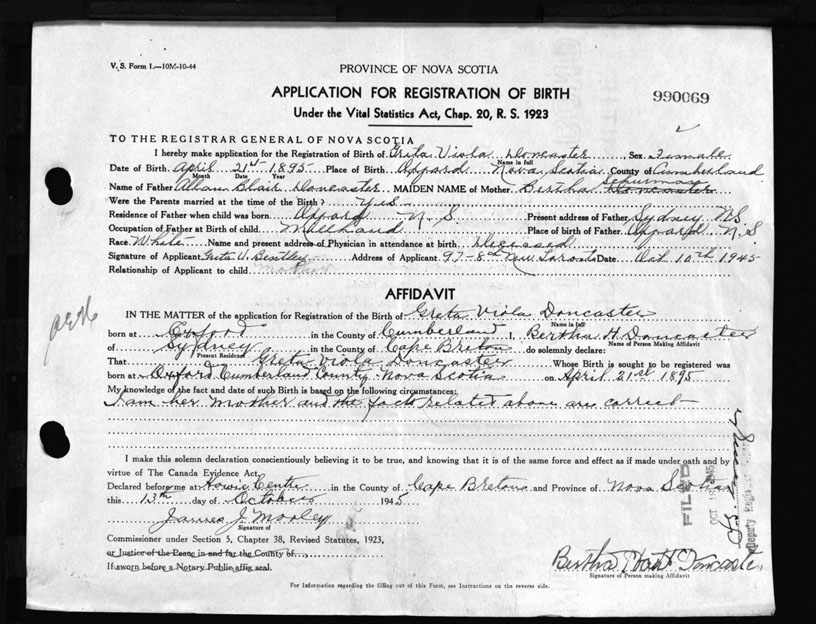 V. S. Form 1.—10M-10-44
PROVINCE OF NOVA SCOTIA
APPLICATION FOR REGISTRATION OF BIRTH
990069
Under the Vital Statistics Act, Chap. 20, R. S. 1923
TO THE REGISTRAR GENERAL OF NOVA SCOTIA
I hereby make application for the Registration of Birth of Greta Viola Doncaster, Sex Female
Name in full
Date of Birth April 21st 1895 Place of Birth Oxford Nova Scotia County of Cumberland
Month Date Year
Schurman
Name of Father Blair Doncaster MAIDEN NAME of Mother Bertha Doncaster
Were the Parents married at the time of the Birth? Yes
Residence of Father when child was born Oxford N. S. Present address of Father Sydney NS
Occupation of Father at Birth of child Millhand Place of birth of Father Oxford N. S.
Race White Name and present address of Physician in attendance at birth Deceased
Signature of Applicant Greta V. Bentley Address of Applicant 97-8th New Toronto Date Oct 10th 1945
Relationship of Applicant to child Mother
AFFIDAVIT
IN THE MATTER of the application for Registration of the Birth of Greta Viola Doncaster
Name in full
born at Oxford in the County of Cumberland I, Bertha H Doncaster
Name of Person Making Affidavit
of Sydney in the County of Cape Breton do solemnly declare:
Present Residence
That Greta Viola Doncaster Whose Birth is sought to be registered was
born at Oxford Cumberland County Nova Scotia on April 21st 1895
My knowledge of the fact and date of such Birth is based on the following circumstances:
I am her Mother and the facts related above are correct
I make this solemn declaration conscientiously believing it to be true, and knowing that it is of the same force and effect as if made under oath and by
virtue of The Canada Evidence Act.
Declared before me at Howie Centre in the County of Cape Breton and Province of Nova Scotia
this 13th day of October 1945
James J. Morley
Signature of
Commissioner under Section 5, Chapter 38, Revised Statutes, 1923,
or Justice of the Peace in and for the County of
If sworn before a Notary Public affix seal.
Bertha Doncaster
Signature of Person making Affidavit
For Information regarding the filling out of this Form, see Instructions on the reverse side.
FILED
OCT 1945
Deputy Registrar